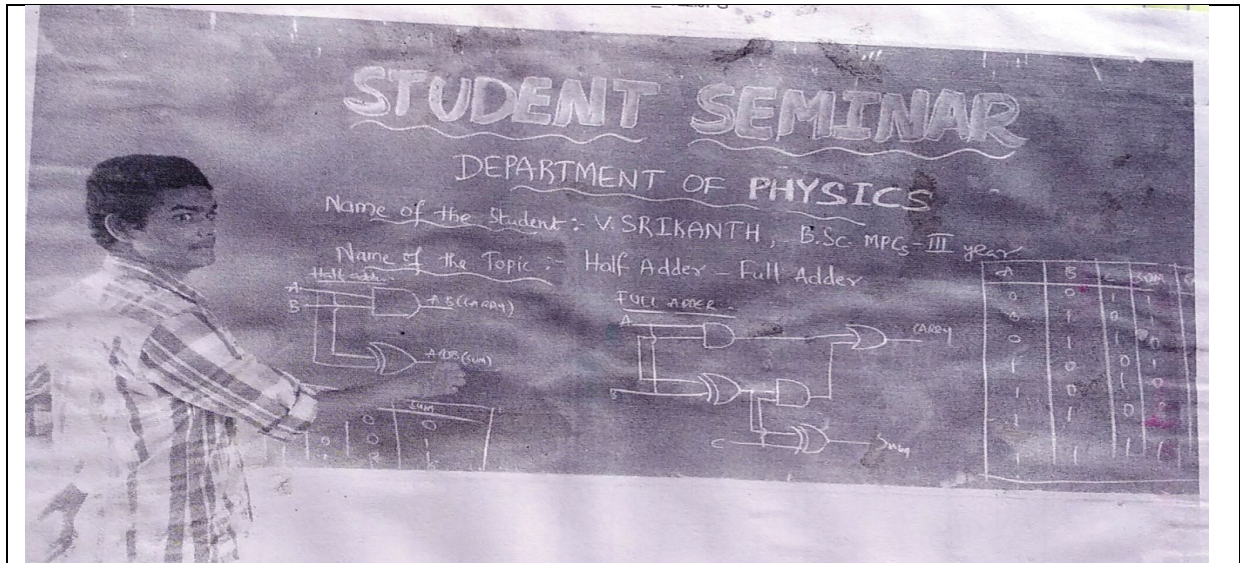 STUDENT SEMINAR
DEPARTMENT OF PHYSICS
Name of the Student :- V. SRIKANTH, B.Sc. MPCs - III year
Name of the Topic :- Half Adder - Full Adder
Half adder
A
B
AB (CARRY)
A⊕B (SUM)
SUM
0 0
0 0 1
FULL ADDER :-
A
B
C
CARRY
Sum
A B C SUM
0 0 1 1
0 1 0 1
0 1 1 0
1 0 0 1
1 0 1 0
1 1 0
1 1 1 1